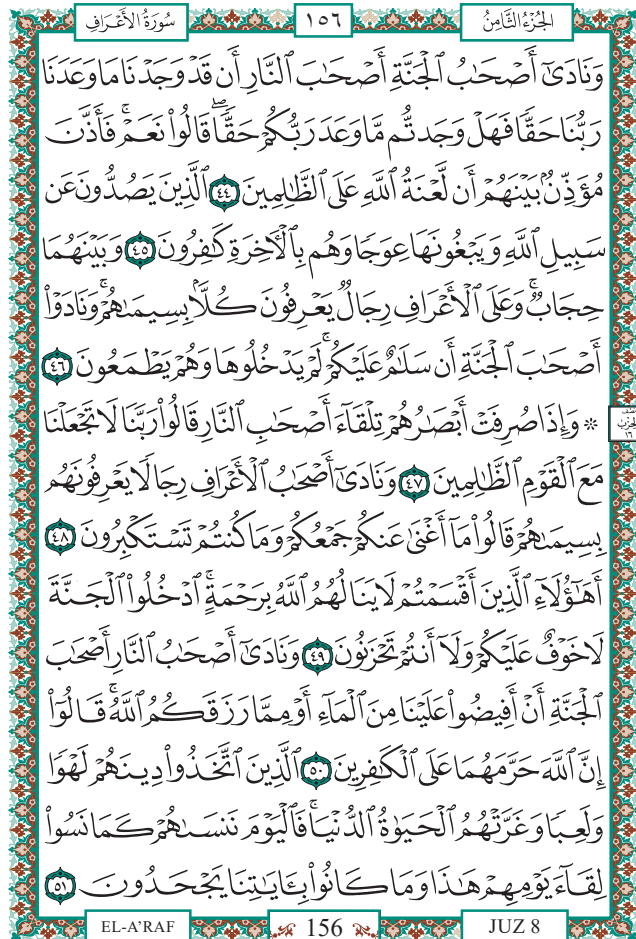 سُورَةُ الأَعْرَافِ ١٥٦ الجُزْءُ الثَّامِنُ
وَنَادَىٰٓ أَصْحَٰبُ ٱلْجَنَّةِ أَصْحَٰبَ ٱلنَّارِ أَن قَدْ وَجَدْنَا مَا وَعَدَنَا
رَبُّنَا حَقًّا فَهَلْ وَجَدتُّم مَّا وَعَدَ رَبُّكُمْ حَقًّا ۖ قَالُوا۟ نَعَمْ ۚ فَأَذَّنَ
مُؤَذِّنٌۢ بَيْنَهُمْ أَن لَّعْنَةُ ٱللَّهِ عَلَى ٱلظَّٰلِمِينَ ٤٤ ٱلَّذِينَ يَصُدُّونَ عَن
سَبِيلِ ٱللَّهِ وَيَبْغُونَهَا عِوَجًا وَهُم بِٱلْأَخِرَةِ كَٰفِرُونَ ٤٥ وَبَيْنَهُمَا
حِجَابٌ ۚ وَعَلَى ٱلْأَعْرَافِ رِجَالٌ يَعْرِفُونَ كُلًّۢا بِسِيمَىٰهُمْ ۚ وَنَادَوْا۟
أَصْحَٰبَ ٱلْجَنَّةِ أَن سَلَٰمٌ عَلَيْكُمْ ۚ لَمْ يَدْخُلُوهَا وَهُمْ يَطْمَعُونَ ٤٦
۞ وَإِذَا صُرِفَتْ أَبْصَٰرُهُمْ تِلْقَآءَ أَصْحَٰبِ ٱلنَّارِ قَالُوا۟ رَبَّنَا لَا تَجْعَلْنَا
نصف
الحزب
١٦
مَعَ ٱلْقَوْمِ ٱلظَّٰلِمِينَ ٤٧ وَنَادَىٰٓ أَصْحَٰبُ ٱلْأَعْرَافِ رِجَالًا يَعْرِفُونَهُم
بِسِيمَىٰهُمْ قَالُوا۟ مَآ أَغْنَىٰ عَنكُمْ جَمْعُكُمْ وَمَا كُنتُمْ تَسْتَكْبِرُونَ ٤٨
أَهَٰٓؤُلَآءِ ٱلَّذِينَ أَقْسَمْتُمْ لَا يَنَالُهُمُ ٱللَّهُ بِرَحْمَةٍ ۚ ٱدْخُلُوا۟ ٱلْجَنَّةَ
لَا خَوْفٌ عَلَيْكُمْ وَلَآ أَنتُمْ تَحْزَنُونَ ٤٩ وَنَادَىٰٓ أَصْحَٰبُ ٱلنَّارِ أَصْحَٰبَ
ٱلْجَنَّةِ أَنْ أَفِيضُوا۟ عَلَيْنَا مِنَ ٱلْمَآءِ أَوْ مِمَّا رَزَقَكُمُ ٱللَّهُ ۚ قَالُوٓا۟
إِنَّ ٱللَّهَ حَرَّمَهُمَا عَلَى ٱلْكَٰفِرِينَ ٥٠ ٱلَّذِينَ ٱتَّخَذُوا۟ دِينَهُمْ لَهْوًا
وَلَعِبًا وَغَرَّتْهُمُ ٱلْحَيَوٰةُ ٱلدُّنْيَا ۚ فَٱلْيَوْمَ نَنسَىٰهُمْ كَمَا نَسُوا۟
لِقَآءَ يَوْمِهِمْ هَٰذَا وَمَا كَانُوا۟ بِـَٔايَٰتِنَا يَجْحَدُونَ ٥١
EL-A'RAF 156 JUZ 8